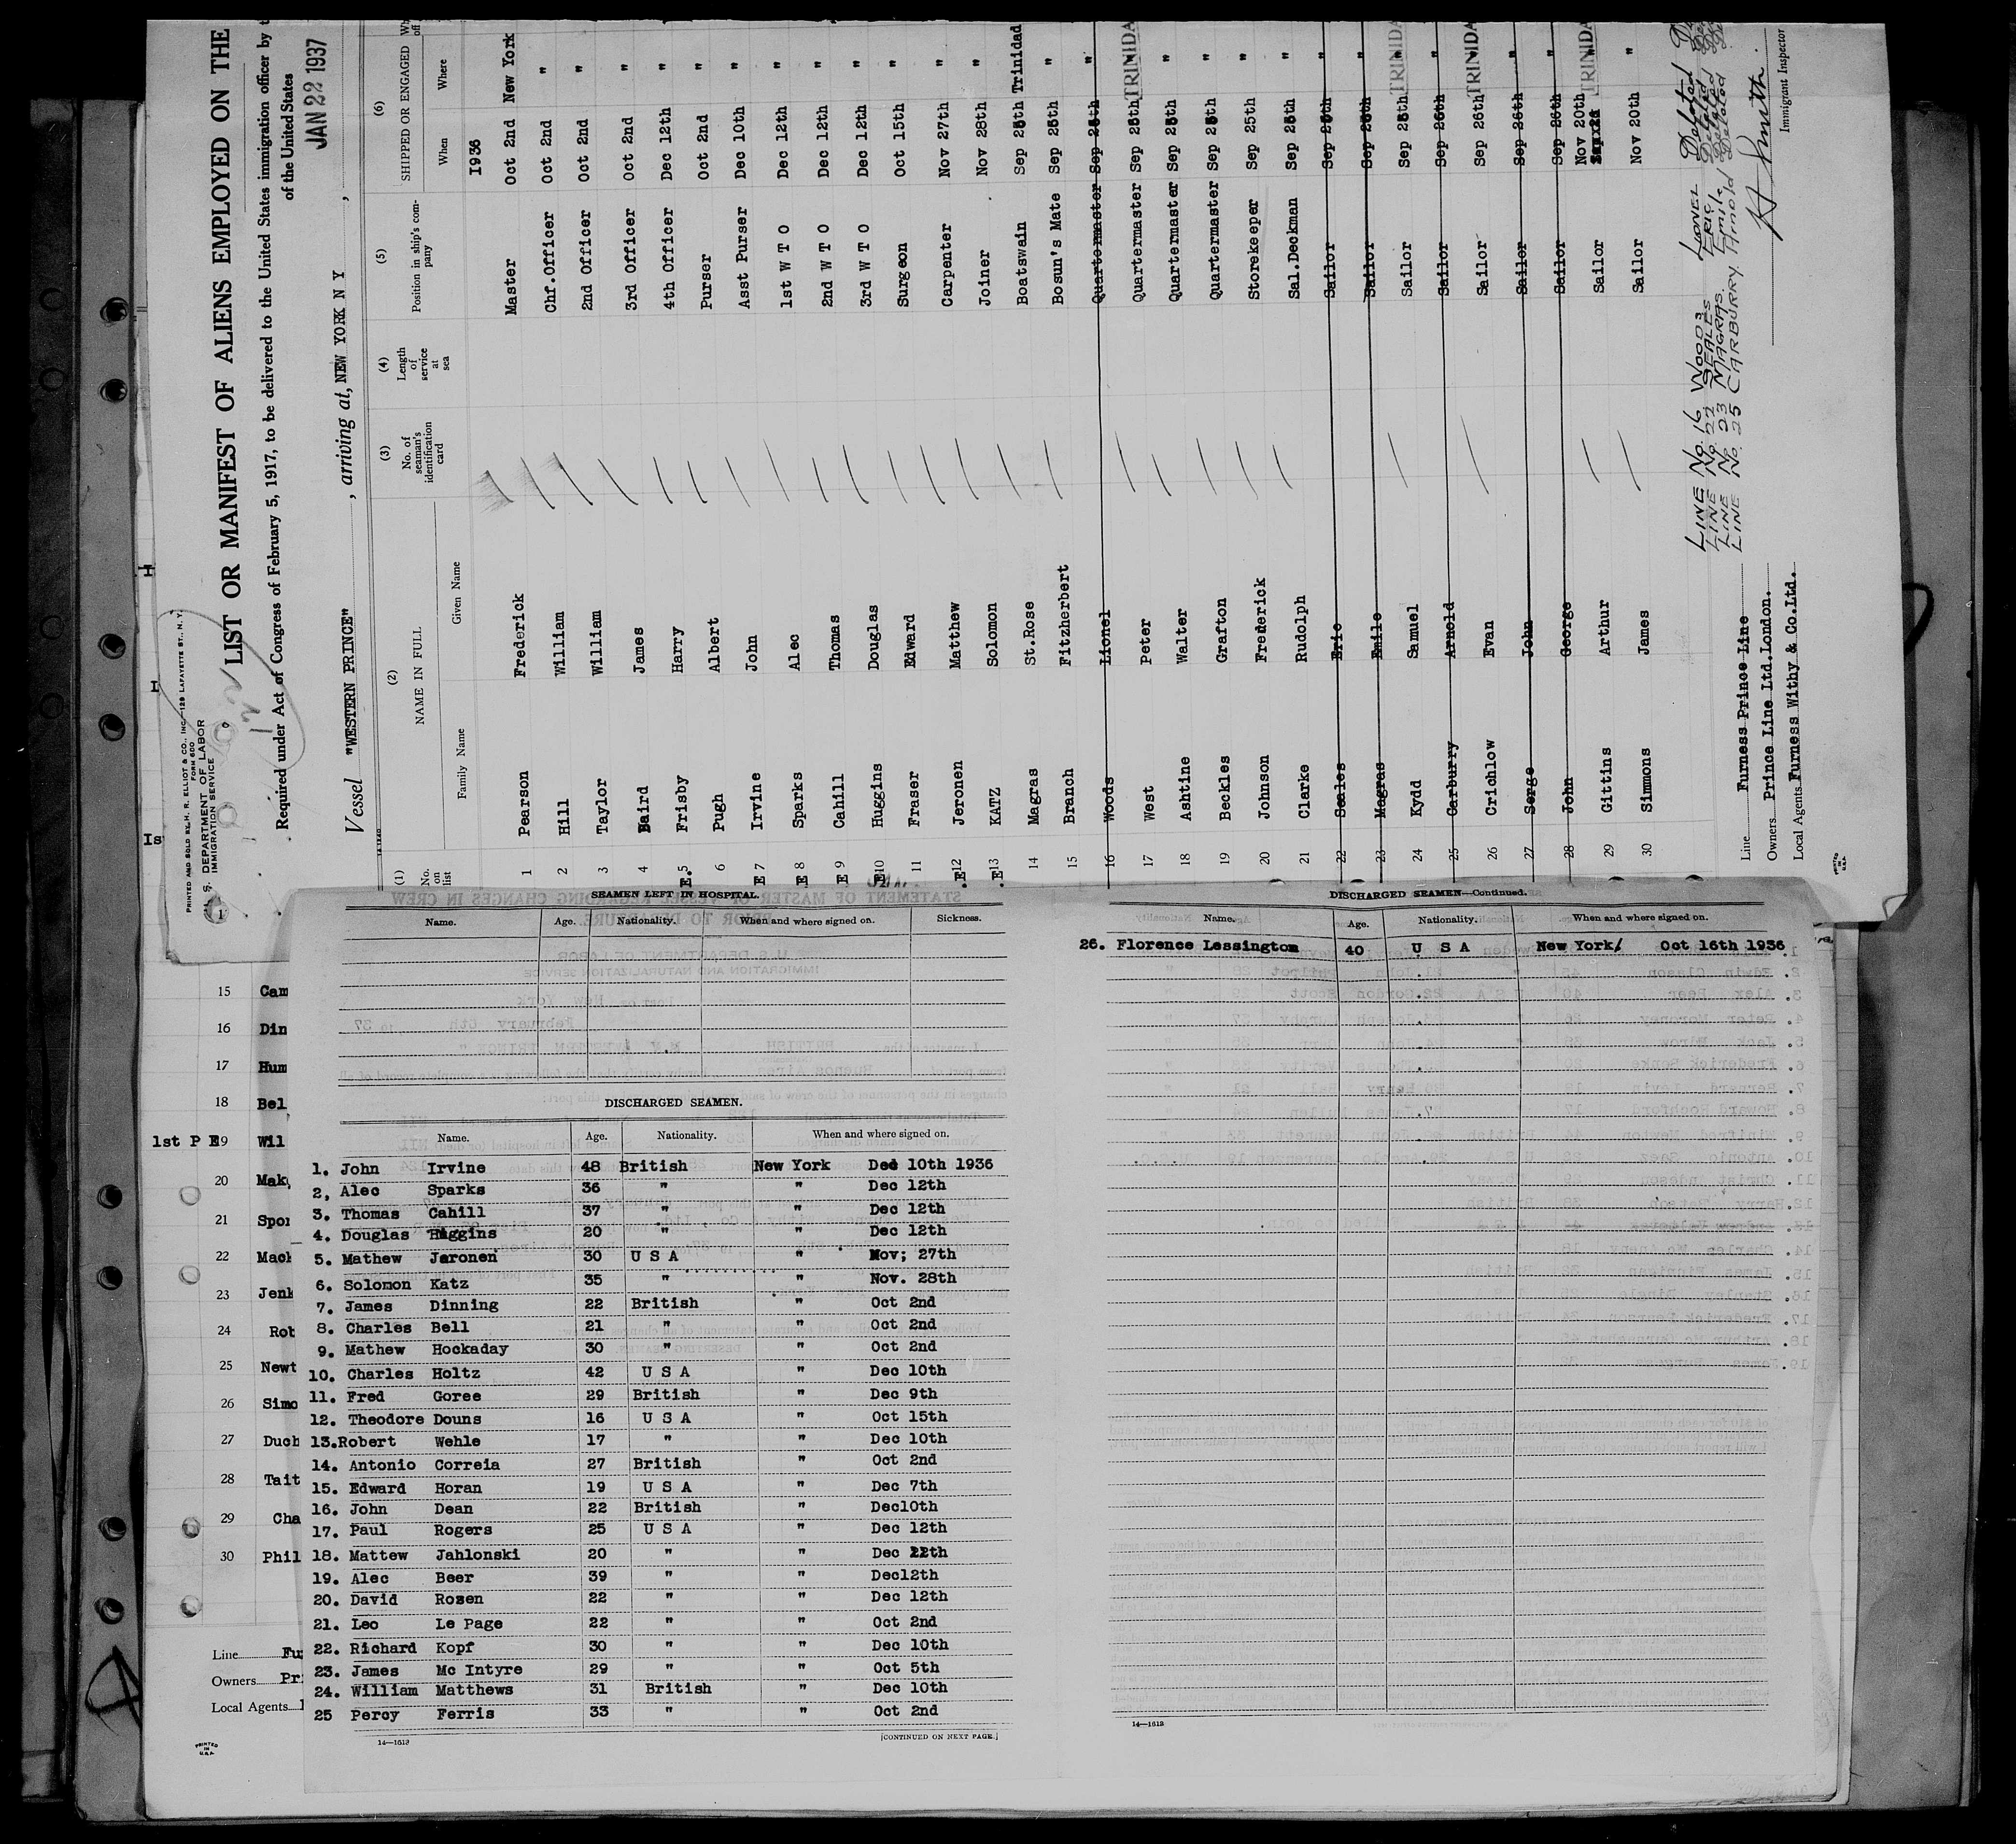 PRINTED AND SOLD BY H. R. ELLIOT & CO., INC.—129 LAFAYETTE ST. N. Y.
FORM 600
U. S. DEPARTMENT OF LABOR
IMMIGRATION SERVICE
LIST OR MANIFEST OF ALIENS EMPLOYED ON THE
Required under Act of Congress of February 5, 1917, to be delivered to the United States immigration officer by t
of the United States
JAN 22 1937
Vessel "WESTERN PRINCE", arriving at, NEW YORK N Y,
(1) No. on list (2) NAME IN FULL Family Name Given Name (3) No. of seaman's identification card (4) Length of service at sea (5) Position in ship's company (6) SHIPPED OR ENGAGED When Where
1936
1 Pearson Frederick Master Oct 2nd New York
2 Hill William Chf.Officer Oct 2nd "
3 Taylor William 2nd Officer Oct 2nd "
4 Baird James 3rd Officer Oct 2nd "
E.5 Frisby Harry 4th Officer Dec 12th "
6 Pugh Albert Purser Oct 2nd "
E 7 Irvine John Asst Purser Dec 10th "
E 8 Sparks Alec 1st W T O Dec 12th "
E 9 Cahill Thomas 2nd W T O Dec 12th "
E10 Huggins Douglas 3rd W T O Dec 12th "
11 Fraser Edward Surgeon Oct 15th "
.E12 Jeronen Matthew Carpenter Nov 27th "
.E13 KATZ Solomon Joiner Nov 28th "
14 Magras St.Rose Boatswain Sep 25th Trinidad
15 Branch Fitzherbert Bosun's Mate Sep 25th "
16 Woods Lionel Quartermaster Sep 25th "
17 West Peter Quartermaster Sep 25th TRINIDA
18 Ashtine Walter Quartermaster Sep 25th "
19 Beckles Grafton Quartermaster Sep 25th "
20 Johnson Frederick Storekeeper Sep 25th "
21 Clarke Rudolph Sal.Deckman Sep 25th "
22 Seales Eric Sailor Sep 26th "
23 Magras Emile Sailor Sep 26th "
24 Kydd Samuel Sailor Sep 25th TRINIDA
25 Carburry Arnold Sailor Sep 26th "
26 Crichlow Evan Sailor Sep 26th TRINIDA
27 Serge John Sailor Sep 26th "
28 John George Sailor Sep 26th "
29 Gittins Arthur Sailor Nov 20th TRINIDA
30 Simmons James Sailor Nov 20th "
LINE No. 16 WOODS LIONEL Deleted
LINE No. 22 SEALES ERIC Deleted
LINE No. 23 MAGRAS. Emile Deleted
LINE No. 25 CARBURRY. Arnold Deleted
Line Furness Prince Line
Owners Prince Line Ltd.London.
Local Agents Furness Withy & Co.Ltd.
Immigrant Inspector
PRINTED IN U.S.A.
15 Cam
16 Din
17 Hum
18 Bel
1st P E 19 Wil
20 Mak
21 Spor
22 Mack
23 Jenk
24 Rob
25 Newt
26 Simo
27 Duch
28 Tait
29 Cha
30 Phil
Line Fu
Owners Pr
Local Agents
PRINTED IN U.S.A.
SEAMEN LEFT IN HOSPITAL.
Name. Age. Nationality. When and where signed on. Sickness.
DISCHARGED SEAMEN.
Name. Age. Nationality. When and where signed on.
1. John Irvine 48 British New York Dec 10th 1936
2, Alec Sparks 36 " " Dec 12th
3. Thomas Cahill 37 " " Dec 12th
4. Douglas Huggins 20 " " Dec 12th
5. Mathew Jeronen 30 U S A " Nov; 27th
6. Solomon Katz 35 " " Nov. 28th
7. James Dinning 22 British " Oct 2nd
8. Charles Bell 21 " " Oct 2nd
9. Mathew Hockaday 30 " " Oct 2nd
10. Charles Holtz 42 U S A " Dec 10th
11. Fred Goree 29 British " Dec 9th
12. Theodore Douns 16 U S A " Oct 15th
13.Robert Wehle 17 " " Dec 10th
14. Antonio Correia 27 British " Oct 2nd
15. Edward Horan 19 U S A " Dec 7th
16. John Dean 22 British " Dec10th
17. Paul Rogers 25 U S A " Dec 12th
18. Mattew Jahlonski 20 " " Dec 12th
19. Alec Beer 39 " " Dec12th
20. David Rosen 22 " " Dec 12th
21. Leo Le Page 22 " " Oct 2nd
22. Richard Kopf 30 " " Dec 10th
23. James Mc Intyre 29 " " Oct 5th
24. William Matthews 31 British " Dec 10th
25 Percy Ferris 33 " " Oct 2nd
14—1613
[CONTINUED ON NEXT PAGE.]
DISCHARGED SEAMEN—Continued.
Name. Age. Nationality. When and where signed on.
26. Florence Lessington 40 U S A New York/ Oct 16th 1936
14—1613